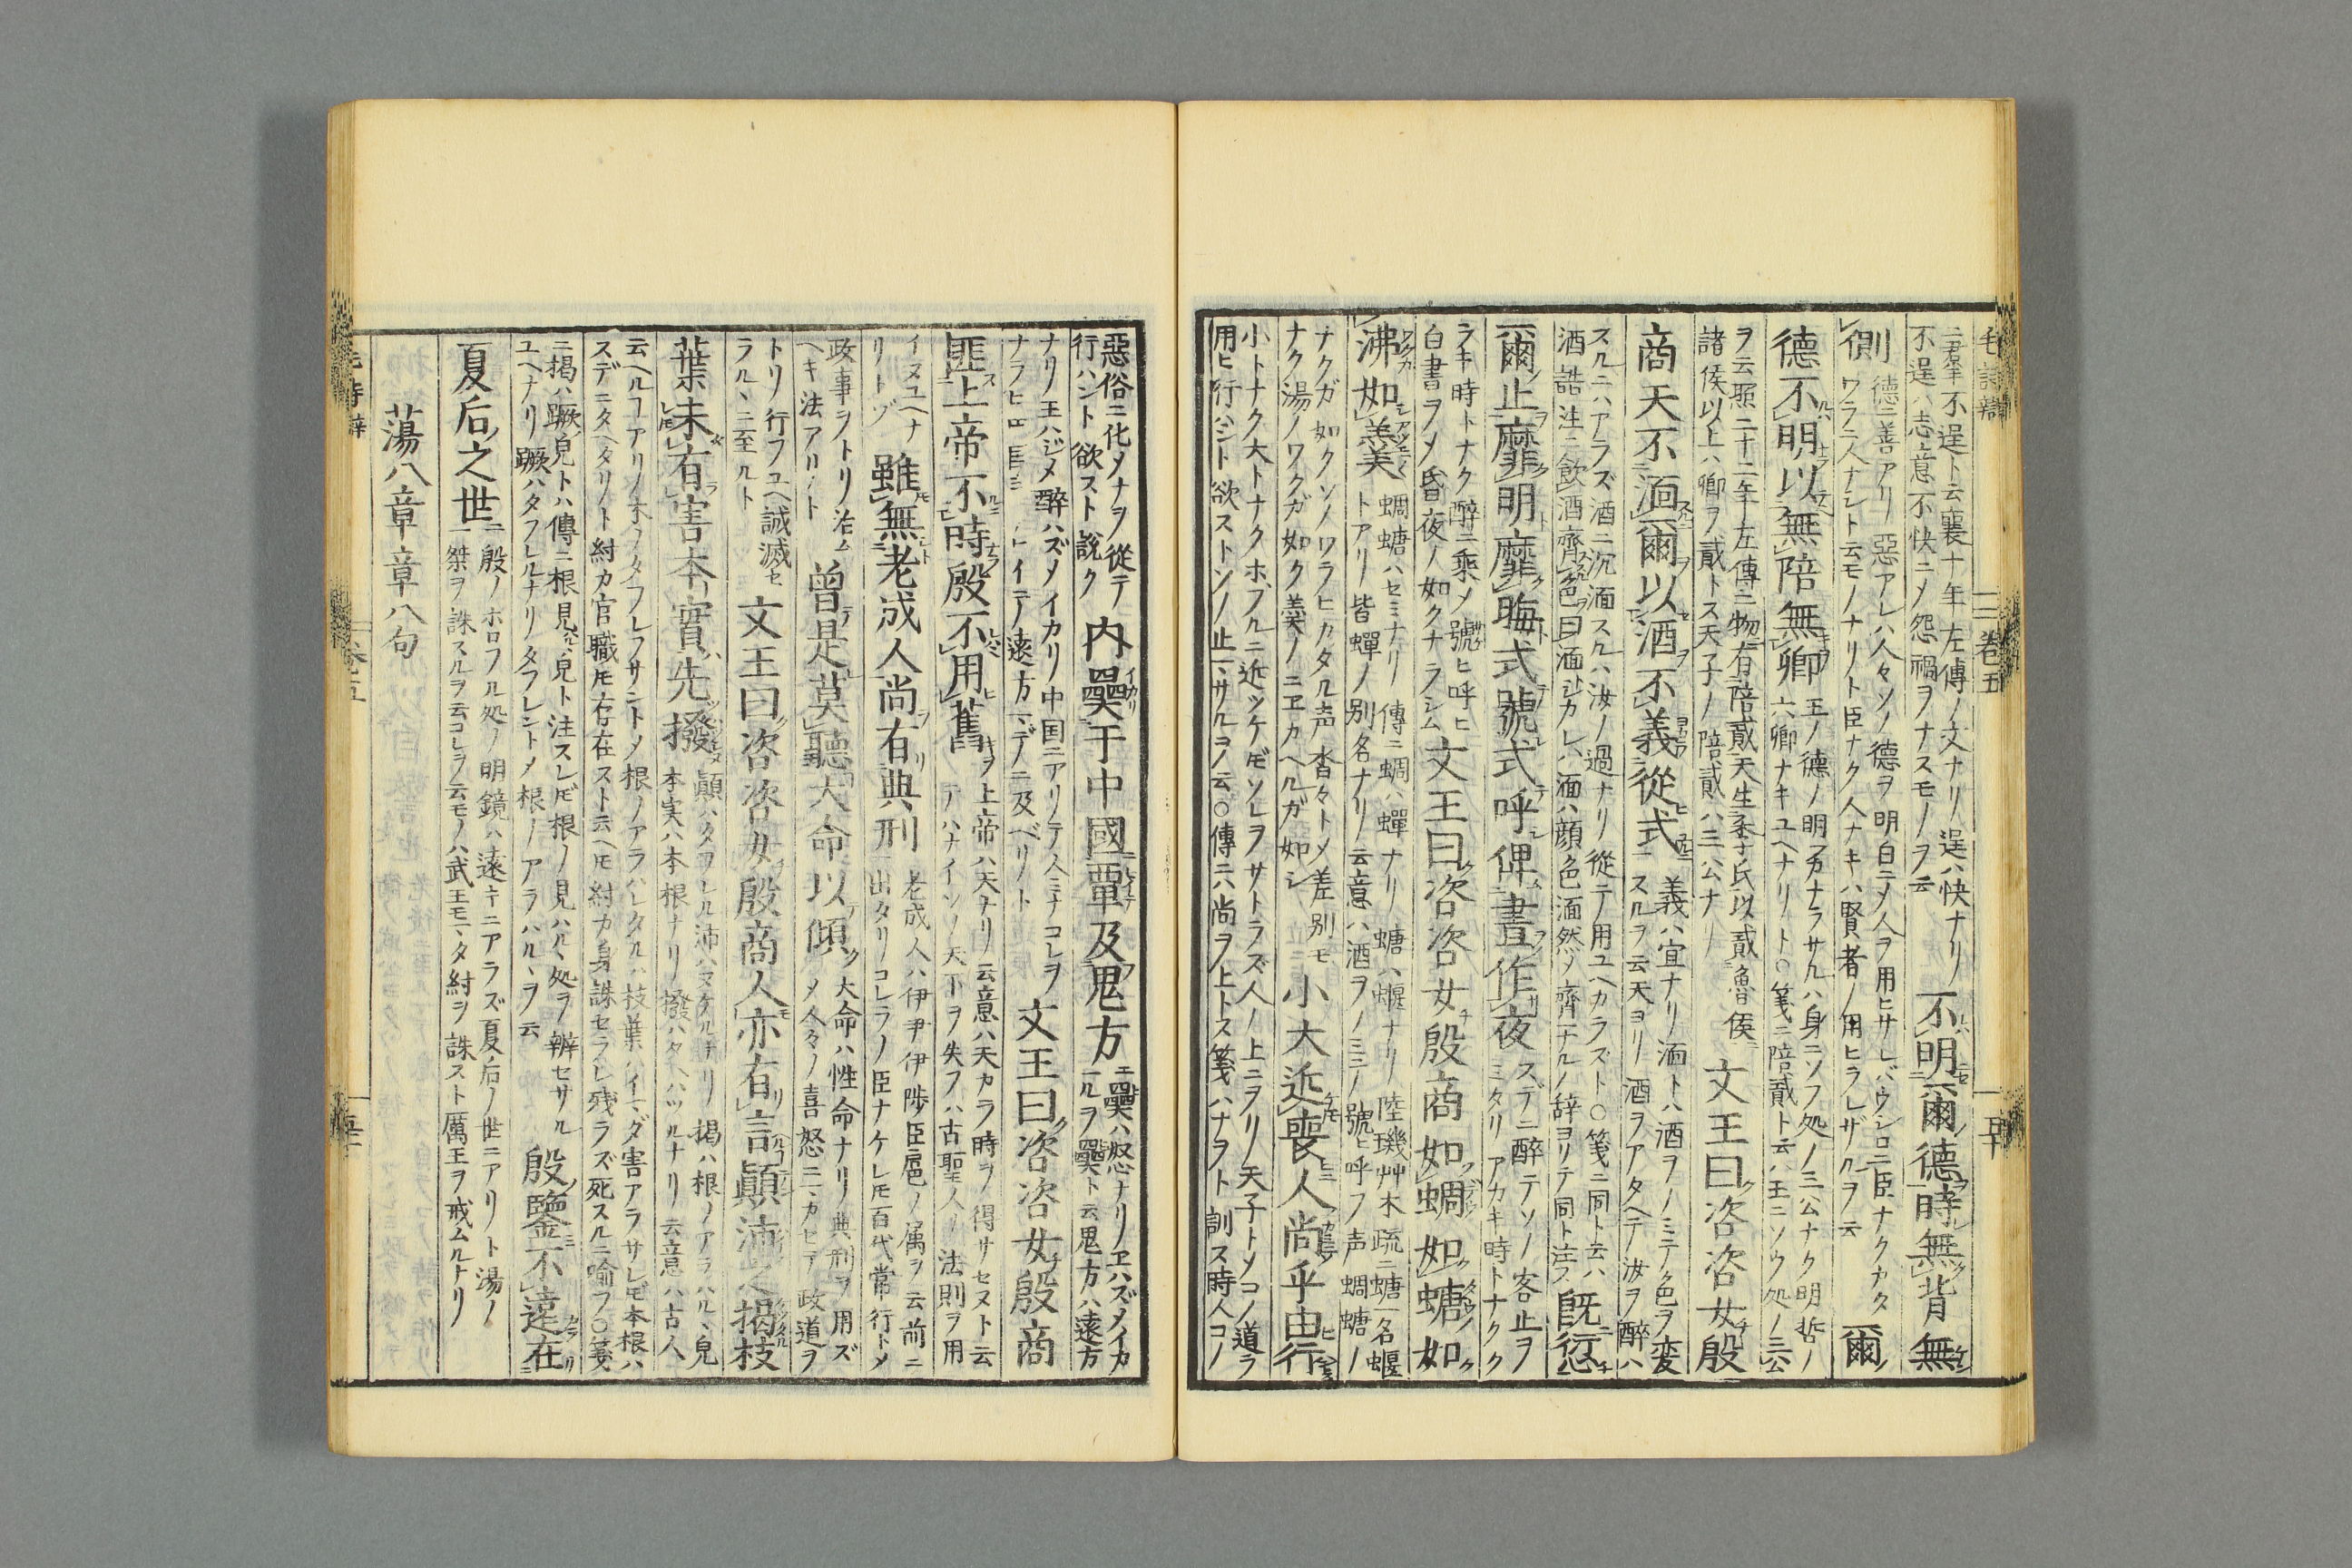 毛詩辯 卷五
ニ君卒不逞ト云襄十年左傳ノ文ナリ逞ハ快ナリ
不逞ハ志意不快ニメ怨禍ヲナスモノヲ云
不明爾德時無背無
側
德ニ善アリ惡アレハ人々ソノ德ヲ明白ニメ人ヲ用ヒサレバウシロニ臣ナクカタ
ワラニ人ナシト云モノナリト臣ナク人ナキハ賢者ノ用ヒラレザルヲ云
爾
德不明以無陪無卿
王ノ德ノ明カナラサルハ身ニソフ処ノ三公ナク明哲ノ
六卿ナキユヘナリト○箋ニ陪貳ト云ハ王ニソウ処ノ三公
ヲ云昭二十二年左傳ニ物有陪貳天生季氏以貳魯侯
諸侯以上ハ卿ヲ貳トス天子ノ陪貳ハ三公ナリ
文王曰咨咨女殷
商天不湎爾以酒不義從式
義ハ宜ナリ湎トハ酒ヲノミテ色ヲ変
スルヲ云天ヨリ酒ヲアタヘテ汝ヲ醉ハ
スルニハアラズ酒ニ沉湎スルハ汝ノ過ナリ從テ用ユヘカラズト○箋ニ同ト云ハ
酒誥注ニ飲酒齊色曰湎トシカレハ湎ハ顔色湎然ソ齊一ナルノ辞ヨリテ同ト注ス
既愆
爾止靡明靡晦式號式呼俾晝作夜
スデニ醉テソノ容止ヲ
ミタリアカキ時トナクク
ラキ時トナク醉ニ乘メ號ヒ呼ヒ
白晝ヲメ昏夜ノ如クナラシム
文王曰咨咨女殷商如蜩如螗如
沸如羹
蜩螗ハセミナリ傳ニ蜩ハ蟬ナリ螗ハ蝘ナリ陸璣艸木疏ニ螗一名蝘
トアリ皆蟬ノ別名ナリ云意ハ酒ヲノミ號ヒ呼フ声蜩螗ノ
ナクガ如クソノワラヒカタル声沓々トメ差別モ
ナク湯ノワクガ如ク羹ノニヱカヘルガ如シ
小大近喪人尚乎由行
小トナク大トナクホブルニ近ツケモソレヲサトラズ人ノ上ニヲリ天子トメコノ道ヲ
用ヒ行ハント欲ストソノ止マサルヲ云○傳ニハ尚ヲ上トス箋ハナヲト訓ス時人コノ
惡俗ニ化メナヲ從テ
行ハント欲スト說ク
內奰于中國覃及鬼方
奰ハ怒ナリヱハズメイカ
ルヲ奰ト云鬼方ハ遠方
ナリ王ハジメ醉ハズメイカリ中国ニアリテ人ミナコレヲ
文王曰咨咨女殷商
匪上帝不時殷不用舊
上帝ハ天ナリ云意ハ天カラ時ヲ得サセヌト云
アハナイソノ天下ヲ失フハ古聖人ノ法則ヲ用
イヌユヘナ
リトゾ
雖無老成人尚有典刑
老成人ハ伊尹伊陟臣扈ノ属ヲ云前ニ
出タリコレラノ臣ナケレモ百代常行トメ
政事ヲトリ治ム
ヘキ法アリト
曾是莫聽大命以傾
大命ハ性命ナリ典刑ヲ用ズ
メ人々ノ喜怒ニマカセテ政道ヲ
トリ行フユヘ誠滅セ
ラルヽニ至ルト
文王曰咨咨女殷商人亦有言顛沛之揭枝
葉未有害本實先撥
顛ハタヲレル沛ハヌケルナリ揭ハ根ノアラハルヽ皃
本実ハ本根ナリ撥ハタヘハツルナリ云意ハ古人
云ヘルコアリノ木ノタフレフサントメ根ノアラハレタルハ枝葉ハイマダ害アラサレモ本根ハ
スデニタヘタリノト紂カ官職モ存在スト云ヘモ紂カ身誅セラレ残ラズ死スルニ喩フ○箋
ニ揭ハ蹶皃トハ傳ニ根見ルヽ皃ト注スレモ根ノ見ハルヽ処ヲ辨セサル
ユヘナリ蹶ハタフレルナリタフレントメ根ノアラハルヽヲ云
殷鑒不遠在
夏后之世
殷ノホロフル処ノ明鏡ハ遠キニアラズ夏后ノ世ニアリノト湯ノ
桀ヲ誅スルヲ云コレラノ云モノハ武王モマタ紂ヲ誅スト厲王ヲ戒ムルナリ
蕩八章章八句